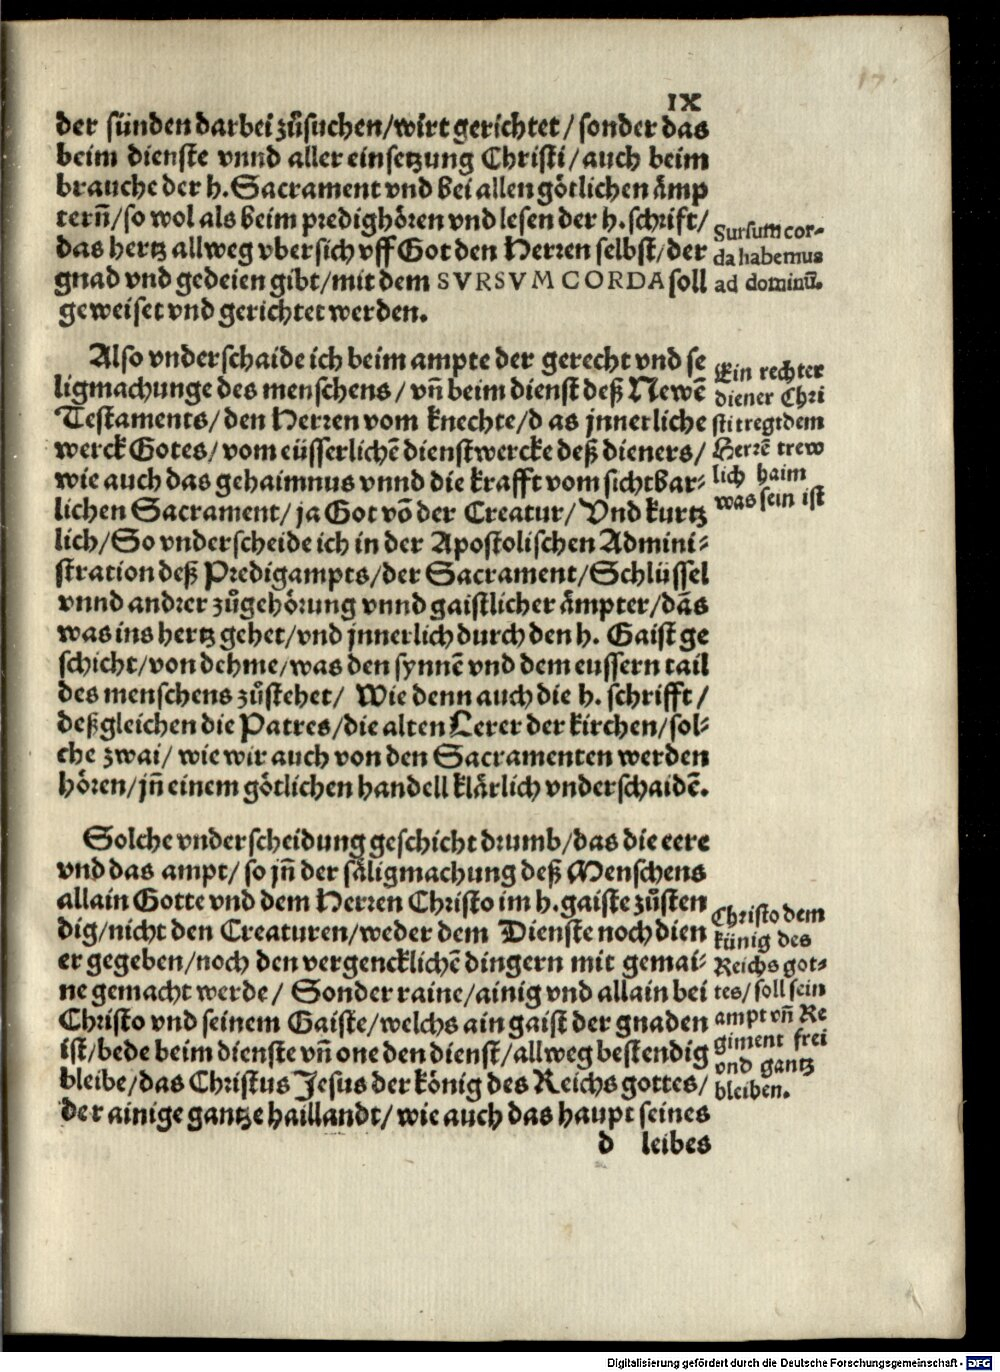 17.
IX
der sünden darbei zůsuchen/wirt gerichtet/sonder das
beim dienste vnnd aller einsetzung Christi/auch beim
brauche der h. Sacrament vnd bei allen götlichen ämp
terñ/so wol als beim predighören vnd lesen der h. schrift/
das hertz allweg vbersich vff Got den Herren selbst/der
gnad vnd gedeien gibt/mit dem SVRSVM CORDA soll
geweiset vnd gerichtet werden.
Sursum cor-
da habemus
ad dominū.
Also vnderschaide ich beim ampte der gerecht vnd se
ligmachunge des menschens/vñ beim dienst deß Newē
Testaments/den Herren vom knechte/d as jnnerliche
werck Gotes/vom eüsserlichē dienstwercke deß dieners/
wie auch das gehaimnus vnnd die krafft vom sichtbar-
lichen Sacrament/ja Got võ der Creatur/Vnd kurtz
lich/So vnderscheide ich in der Apostolischen Admini-
stration deß Predigampts/der Sacrament/Schlüssel
vnnd andrer zůgehörung vnnd gaistlicher ämpter/dās
was ins hertz gehet/vnd jnnerlich durch den h. Gaist ge
schicht/von dehme/was den synnē vnd dem eussern tail
des menschens zůstehet/ Wie denn auch die h. schrifft/
deßgleichen die Patres/die alten Lerer der kirchen/sol-
che zwai/ wie wir auch von den Sacramenten werden
hören/jñ einem götlichen handell klärlich vnderschaidē.
Ein rechter
diener Chri
sti tregt dem
Herrē trew
lich haim
was sein ist
Solche vnderscheidung geschicht drumb/das die eere
vnd das ampt/so jñ der säligmachung deß Menschens
allain Gotte vnd dem Herren Christo im h. gaiste zůsten
dig/nicht den Creaturen/weder dem Dienste noch dien
er gegeben/noch den vergencklichē dingern mit gemai-
ne gemacht werde/ Sonder raine/ainig vnd allain bei
Christo vnd seinem Gaiste/welchs ain gaist der gnaden
ist/bede beim dienste vñ one den dienst/allweg bestendig
bleibe/das Christus Jesus der könig des Reichs gottes/
der ainige gantze haillandt/wie auch das haupt seines
Christo dem
künig des
Reichs got-
tes/soll sein
ampt vñ Re
giment frei
vnd gantz
bleiben.
d leibes
Digitalisierung gefördert durch die Deutsche Forschungsgemeinschaft - DFG